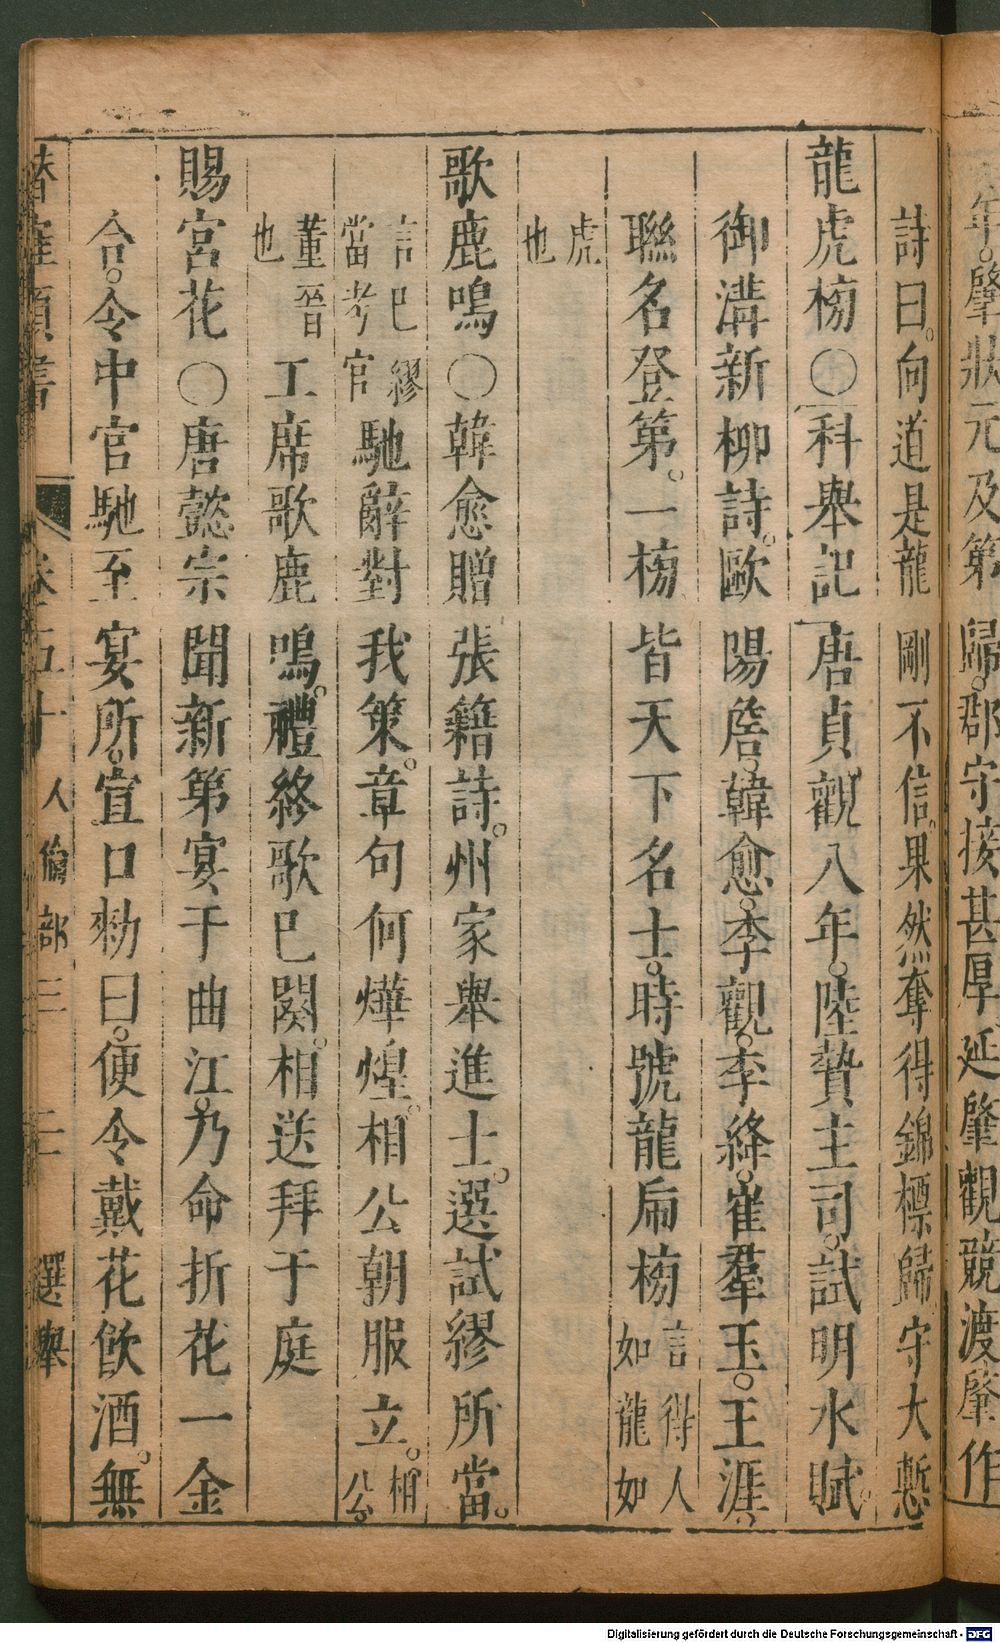 年。肇狀元及第歸。郡守接甚厚延肇觀競渡肇作
詩曰。向道是龍剛不信。果然奪得錦標歸守大慙
龍虎榜○科舉記唐貞觀八年。陸贄主司。試明水賦。
御溝新柳詩。歐陽詹。韓愈。李觀。李絳。崔羣玉。王涯。
聯名登第。一榜皆天下名士。時號龍虎榜言得人如龍如
虎也
歌鹿鳴○韓愈贈張籍詩。州家舉進士。選試繆所當。
言已繆當考官馳辭對我策。章句何煒煌。相公朝服立。相公
董晉也工席歌鹿鳴。禮終歌已闋。相送拜于庭
賜宮花○唐懿宗聞新第宴于曲江。乃命折花一金
合。令中官馳至宴所。宣口勑曰。便令戴花飲酒。無
卷五十 人倫部三 二 選舉
Digitalisierung gefördert durch die Deutsche Forschungsgemeinschaft - DFG